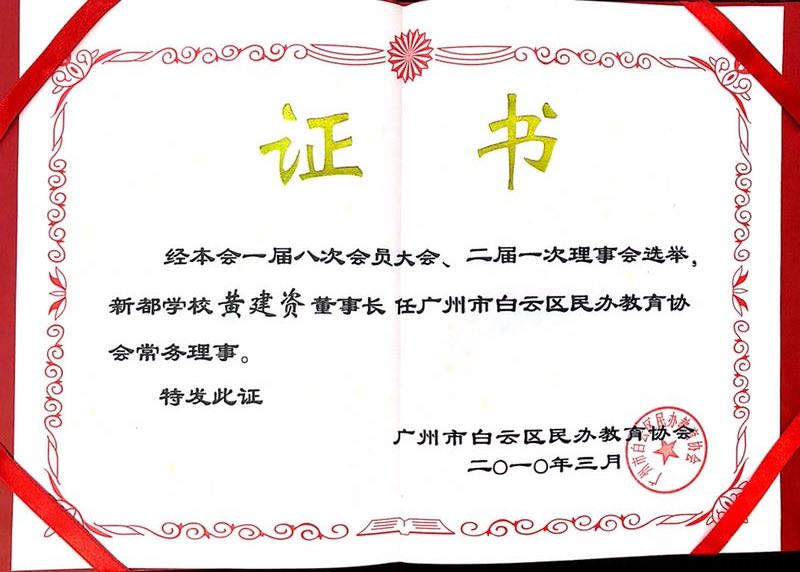 证 书
经本会一届八次会员大会、二届一次理事会选举，
新都学校黄建资董事长 任广州市白云区民办教育协
会常务理事。
特发此证
广州市白云区民办教育协会
二〇一〇年三月
广州市白云区民办教育协会